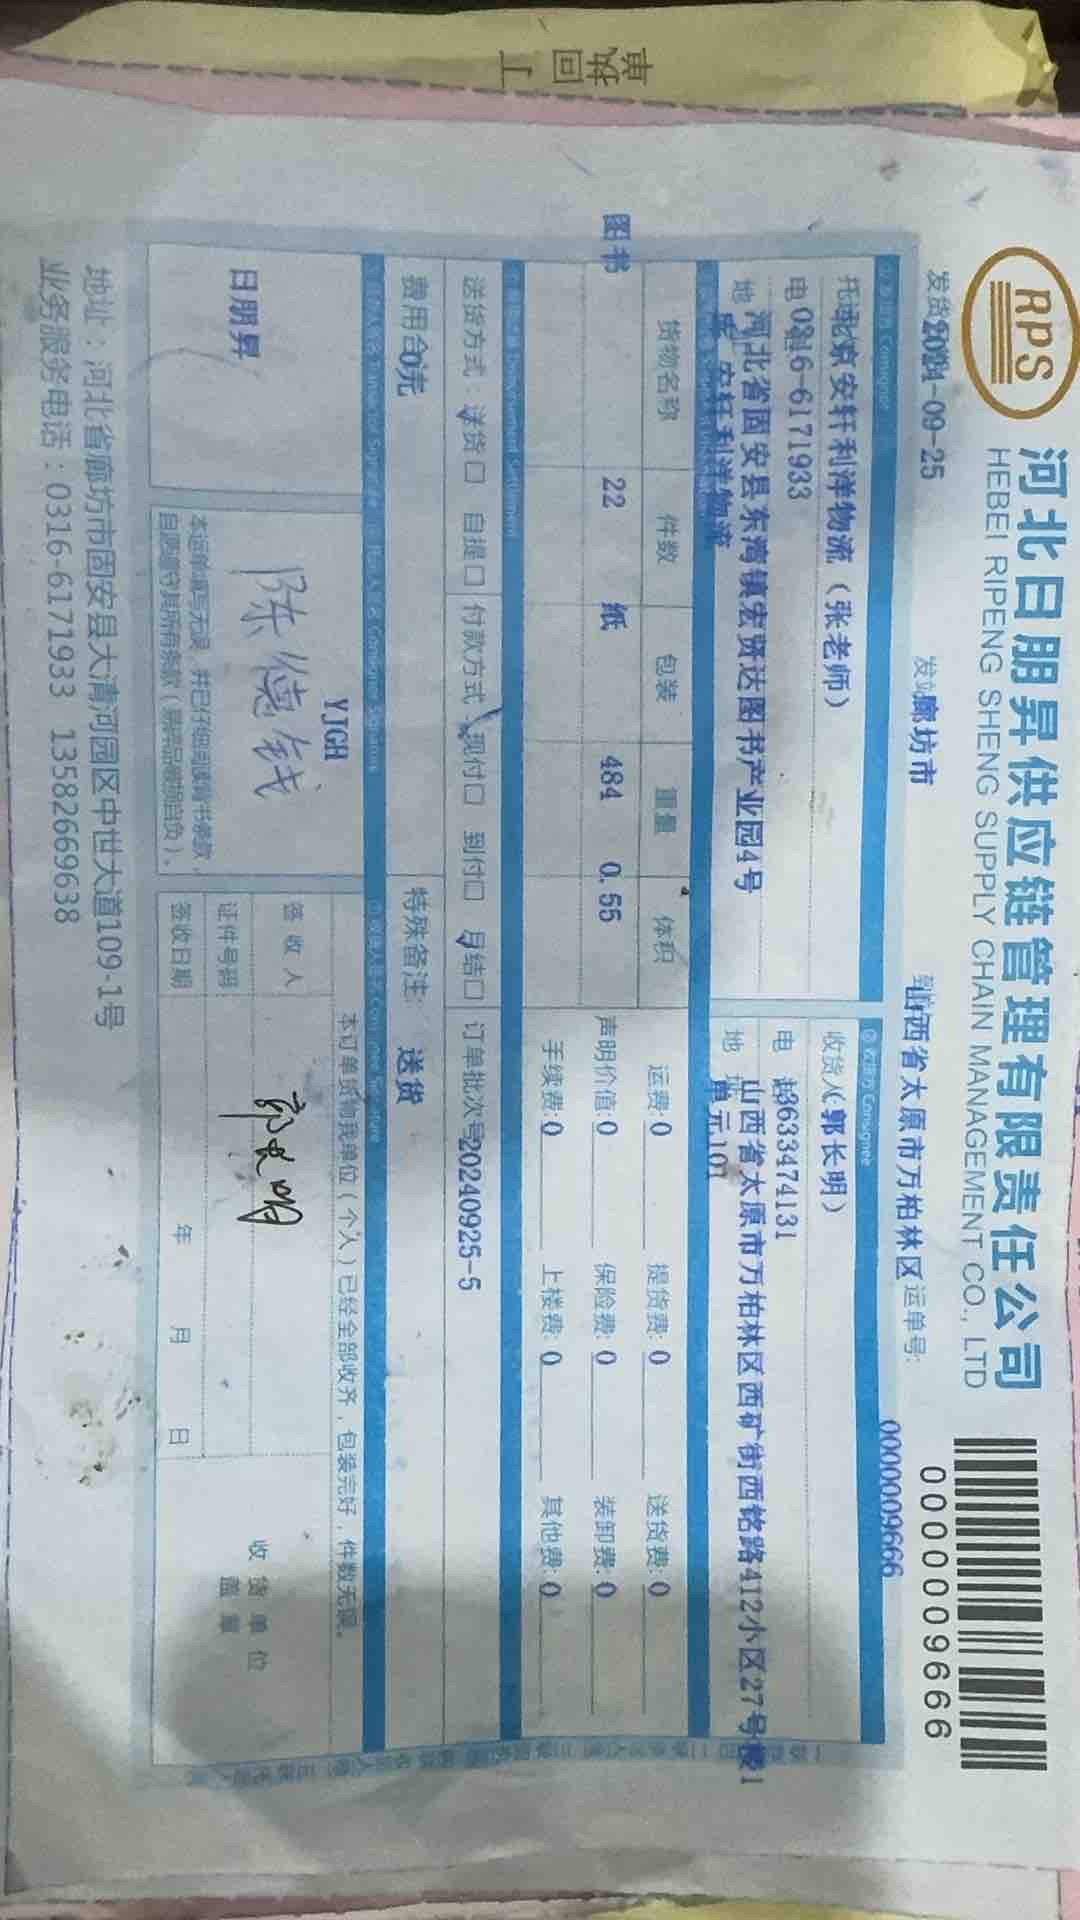 回执
RPS
河北日朋昇供应链管理有限责任公司
HEBEI RIPENG SHENG SUPPLY CHAIN MANAGEMENT CO., LTD
0000009666
2024-09-25
廊坊市
山西省太原市万柏林区
运单号:
0000009666
Consignor
收货方 Consignee
北京安轩利洋物流（张老师）
收货人（郭长明）
0316-6171933
河北省固安县东湾镇宏贤达图书产业园4号
安轩利洋物流
山西省太原市万柏林区西矿街西铭路412小区27号楼1
单元101
货物名称 件数 包装 重量 体积
图书 22 纸 484 0.55
运费:0 提货费:0 送货费:0
声明价值:0 保险费:0 装卸费:0
手续费:0 上楼费:0 其他费:0
送货方式：送货□ 自提□
付款方式：现付□ 到付□ 月结□
订单批次号20240925-5
费用合 0元
特殊备注: 送货
日朋昇
YJGH
本订单货物我单位（个人）已经全部收齐，包装完好，件数无误。
签收人
郭长明
证件号码
签收日期 年 月 日
收货单位
盖章
地址：河北省廊坊市固安县大清河园区中世大道109-1号
业务服务电话：0316-6171933 13582669638